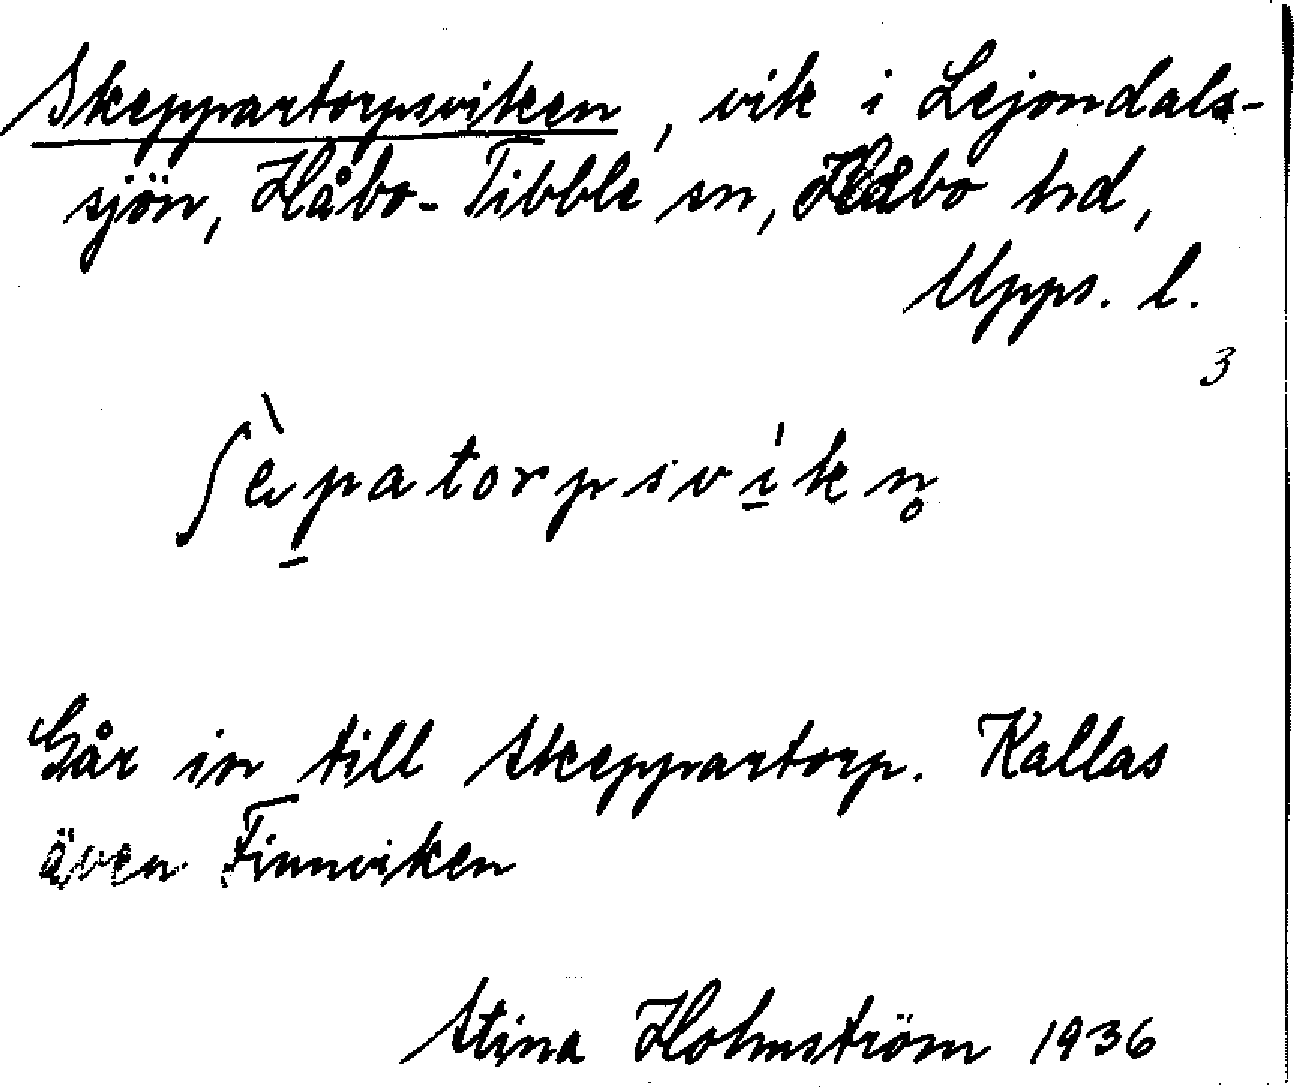 Skeppartorpsviken, vik i Lejondals-
sjön, Håbo-Tibble sn, Håbo hd,
Upps. l.
3
ʃὲp̲atorpsvi̲̍kn̥
Går in till Skeppartorp. Kallas
även Finnviken
Stina Holmström 1936